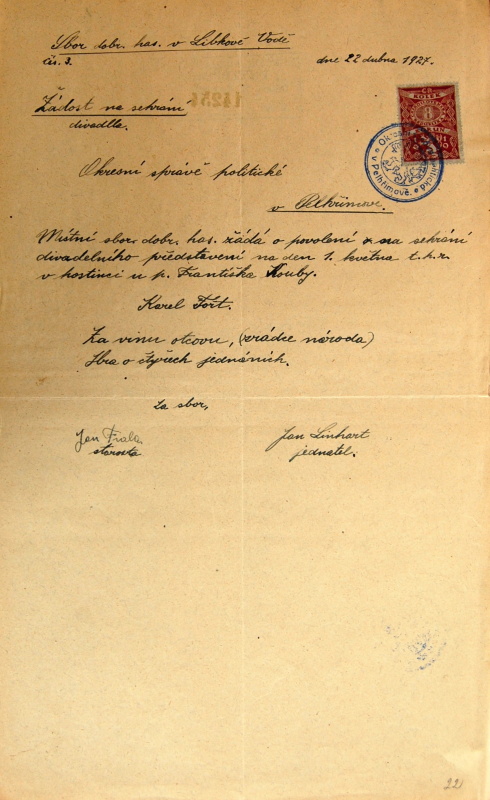 Sbor dobr. has. v Libkové Vodě
čís. 3. dne 22 dubna 1927.
14254
Žádost na sehrání
divadlla.
ČS
KOLEK
8
Okresní správě politické
v Pelhřimově.
v Pelhřimově.
Místní sbor dobr. has. žádá o povolení na sehrání
divadelního představení na den 1. května t.k.r.
v hostinci u p. Františka Kouby.
Karel Fořt.
Za vinu otcovu, (zrádce národa)
Hra o čtyřech jednáních.
Za sbor,
Jan Fiala
starosta
Jan Linhart
jednatel.
22